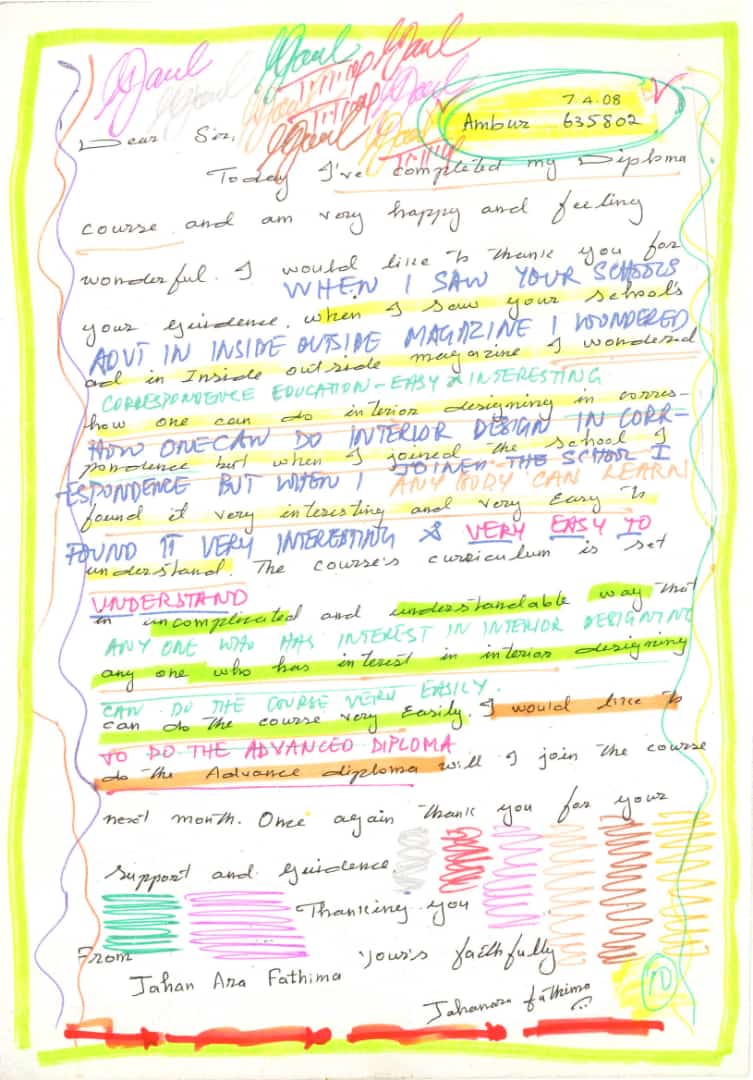 Paul
Paul Paul
Paul Paul
Paul Paul
Paul Paul
7.4.08
Ambur 635802
Dear Sir,
Today I've completed my Diploma
course and am very happy and feeling
wonderful. I would like to thank you for
WHEN I SAW YOUR SCHOOLS
your guidence. when I saw your school's
ADVT IN INSIDE OUTSIDE MAGAZINE I WOUNDERED
ad in Inside outside magazine I wondered
CORRESPONDENCE EDUCATION - EASY & INTERESTING
how one can do interior designing in corres-
HOW ONE CAN DO INTERIOR DESIGN IN CORR-
pondence but when I joined the school I
ESPONDENCE BUT WHEN I JOINED THE SCHOOL I
ANY BODY CAN LEARN
found it very interesting and very easy to
FOUND IT VERY INTERESTING & VERY EASY TO
understand. The course's curriculum is set
UNDERSTAND
in uncomplicated and understandable way that
ANY ONE WHO HAS INTEREST IN INTERIOR DESIGNING
any one who has interest in interior designing
CAN DO THE COURSE VERY EASILY.
can do the course very Easily. I would like to
TO DO THE ADVANCED DIPLOMA
do the Advance diploma will I join the course
next month. Once again thank you for your
support and guidence.
Thanking you
From Your's faithfully
Jahan Ara Fathima
Jahanara fathima
10